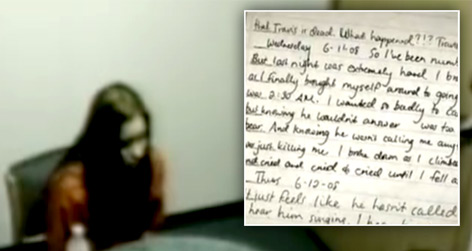 that Travis is dead. What happened?!?
Wednesday 6-11-08 So I've been numb
But last night was extremely hard I
as I finally brought myself around to going
was 2:30 AM. I wanted so badly to
but knowing he wouldn't answer was too
bear. And knowing he won't calling me any
was just killing me I broke down as I climbed
and cried and cried & cried until I fell a
Thurs 6-12-08
I just feels like he hasn't called
hear him singing. I